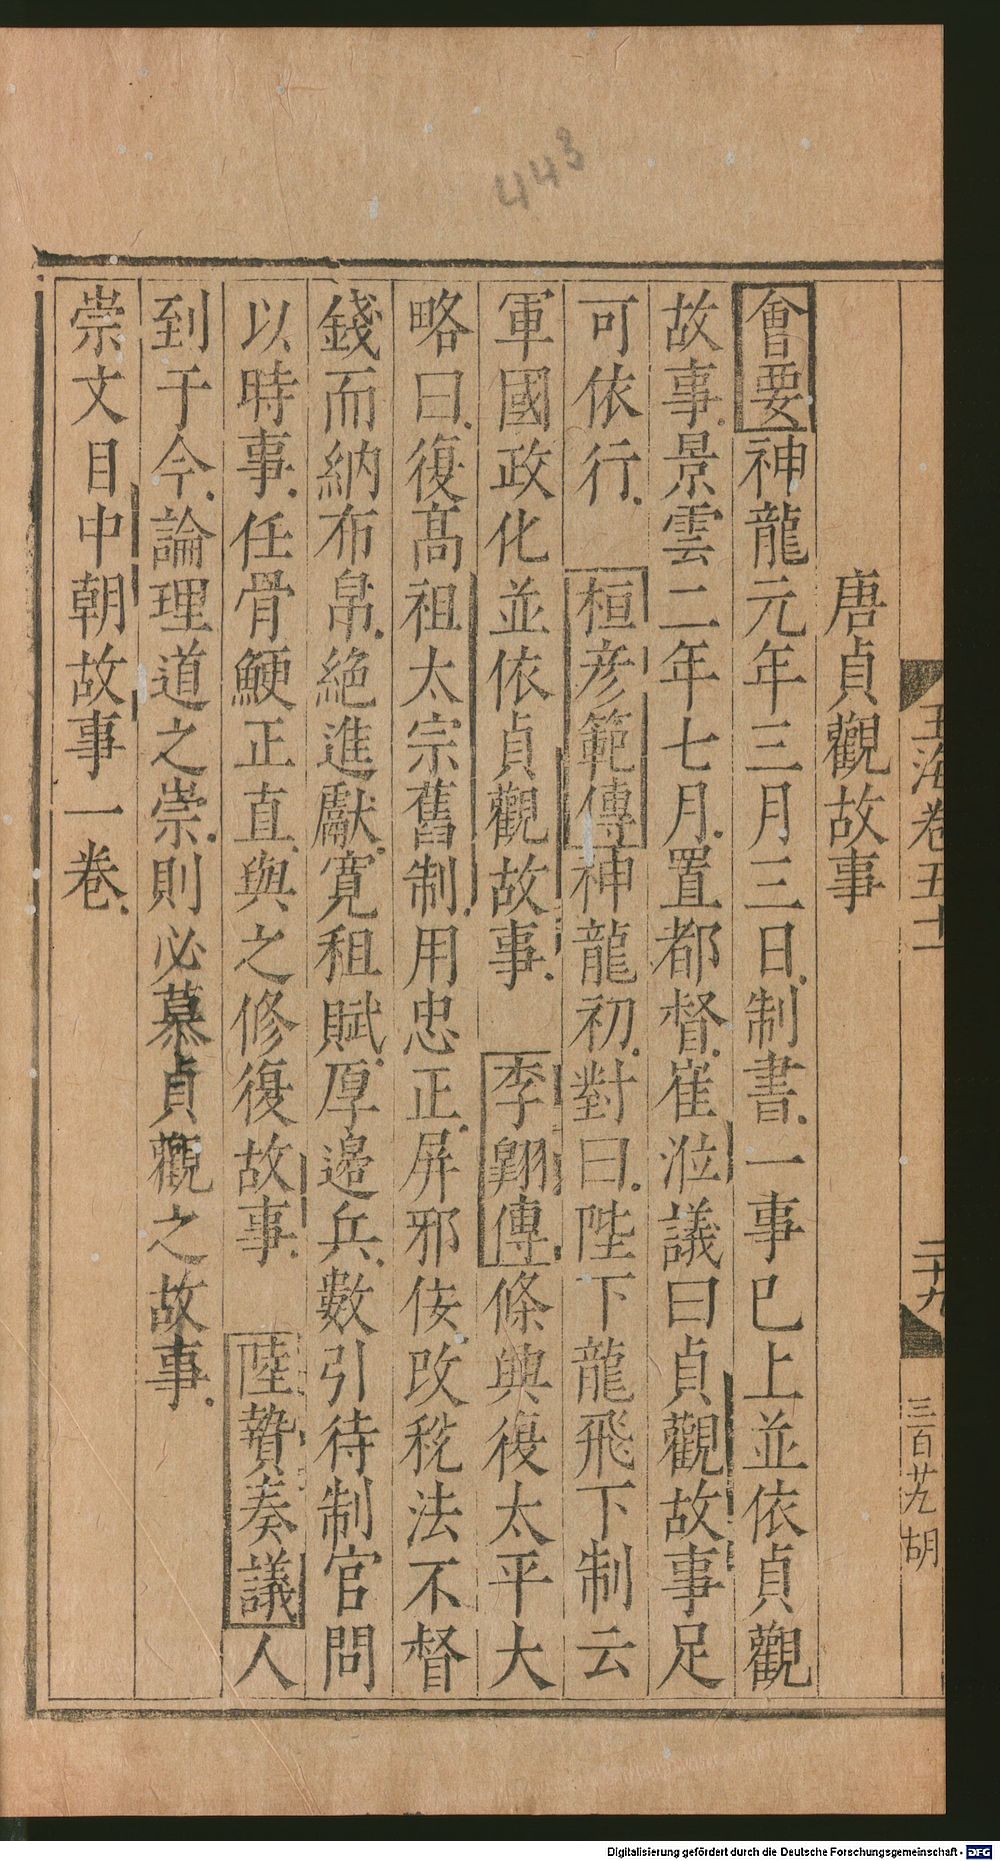 443
玉海卷五十一
二十九
唐貞觀故事
會要神龍元年三月三日制書一事已上並依貞觀
故事景雲二年七月置都督崔涖議曰貞觀故事足
可依行 桓彥範傳神龍初對曰陛下龍飛下制云
軍國政化並依貞觀故事 李翱傳條興復太平大
略曰復髙祖太宗舊制用忠正屏邪佞改稅法不督
錢而納布帛絶進獻寬租賦厚邊兵數引待制官問
以時事任骨鯁正直與之修復故事 陸贄奏議人
到于今論理道之崇則必慕貞觀之故事
崇文目中朝故事一卷
Digitalisierung gefördert durch die Deutsche Forschungsgemeinschaft - DFG